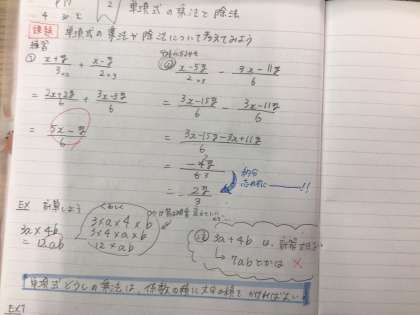 単項式の乗法と除法
課題 単項式の乗法や除法について考えてみよう
練習
x+y/3 + x-y/2
= 2x+2y/6 + 3x-3y/6
= 5x-y/6
x-5y/2 - 3x-11y/6
= 3x-15y/6 - 3x-11y/6
= 3x-15y-3x+11y/6
= -4y/6
= -2y/3
約分
忘れずに!!
EX 計算しよう
3a×4b
= 12ab
くわしく
3×a×4×b
3×4×a×b
12×ab
3a+4b は、計算
→ 7abとかは ×
単項式どうしの乗法は、係数の積に文字の積をかければよい
EX7